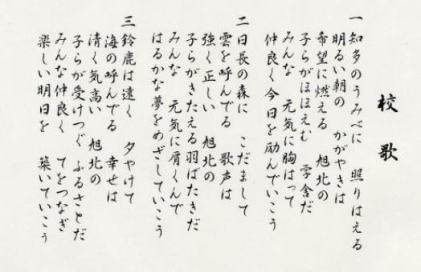 校歌
一 知多のうみべに 照りはえる
明るい朝の かがやきは
希望に燃える 旭北の
子らがほほえむ 学舎だ
みんな 元気に胸はって
仲良く今日を励んでいこう
二 日長の森に こだまして
雲を呼んでる 歌声は
強く正しい 旭北の
子らがきたえる羽ばたきだ
みんな 元気に肩くんで
はるかな夢をめざしていこう
三 鈴鹿は遠く 夕やけて
海の呼んでる 幸せは
清く気高い 旭北の
子らが受けつぐ ふるさとだ
みんな仲良く てをつなぎ
楽しい明日を 築いていこう